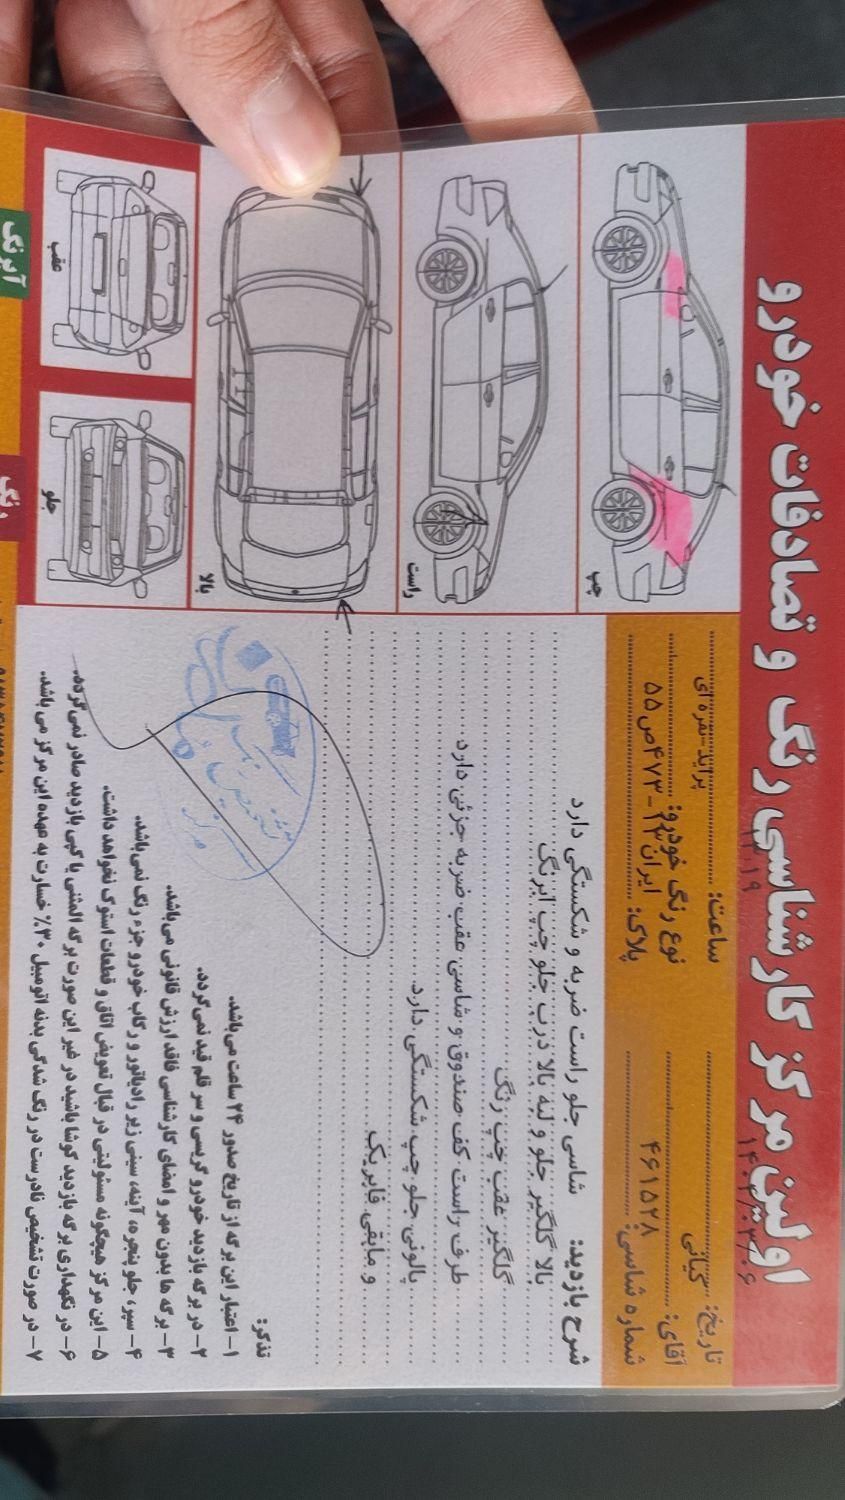 اولین مرکز کارشناسی رنگ و تصادفات خودرو
تاریخ: ۱۴۰۲/۰۳/۰۶
ساعت: ۱۲:۱۹
آقای: کیانی
نوع رنگ خودرو: پراید-نقره ای
شماره شاسی: ۴۶۱۵۲۸
پلاک: ایران ۱۴-۴۷۳ص۵۵
شرح بازدید: شاسی جلو راست ضربه و شکستگی دارد
بالا گلگیر جلو و لبه بالا درب جلو چپ ابرنگ
گلگیر عقب چپ رنگ
طرف راست کف صندوق و شاسی عقب ضربه جزئی دارد
پالونی جلو چپ شکستگی دارد
و مابقی فابریک
تذکر:
۱- اعتبار این برگه از تاریخ صدور ۲۴ ساعت می‌باشد.
۲- در برگه بازدید خودرو گریسی و سر قلم قید نمی‌گردد.
۳- برگه ها بدون مهر و امضای کارشناسی فاقد ارزش قانونی می‌باشد.
۴- سپر، جلو پنجره، آینه، سینی زیر رادیاتور و رکاب خودرو جزء رنگ نمی‌باشد.
۵- این مرکز هیچگونه مسئولیتی در قبال تعویض اتاق و قطعات استوک نخواهد داشت.
۶- در نگهداری برگه بازدید کوشا باشید در غیر این صورت برگه المثنی یا کپی بازدید صادر نمی‌گردد.
۷- در صورت تشخیص نادرست در رنگ شدگی بدنه اتومبیل ۳۰٪ خسارت به عهده این مرکز می‌باشد.
چپ
راست
بالا
جلو
عقب
رنگ
آبرنگ